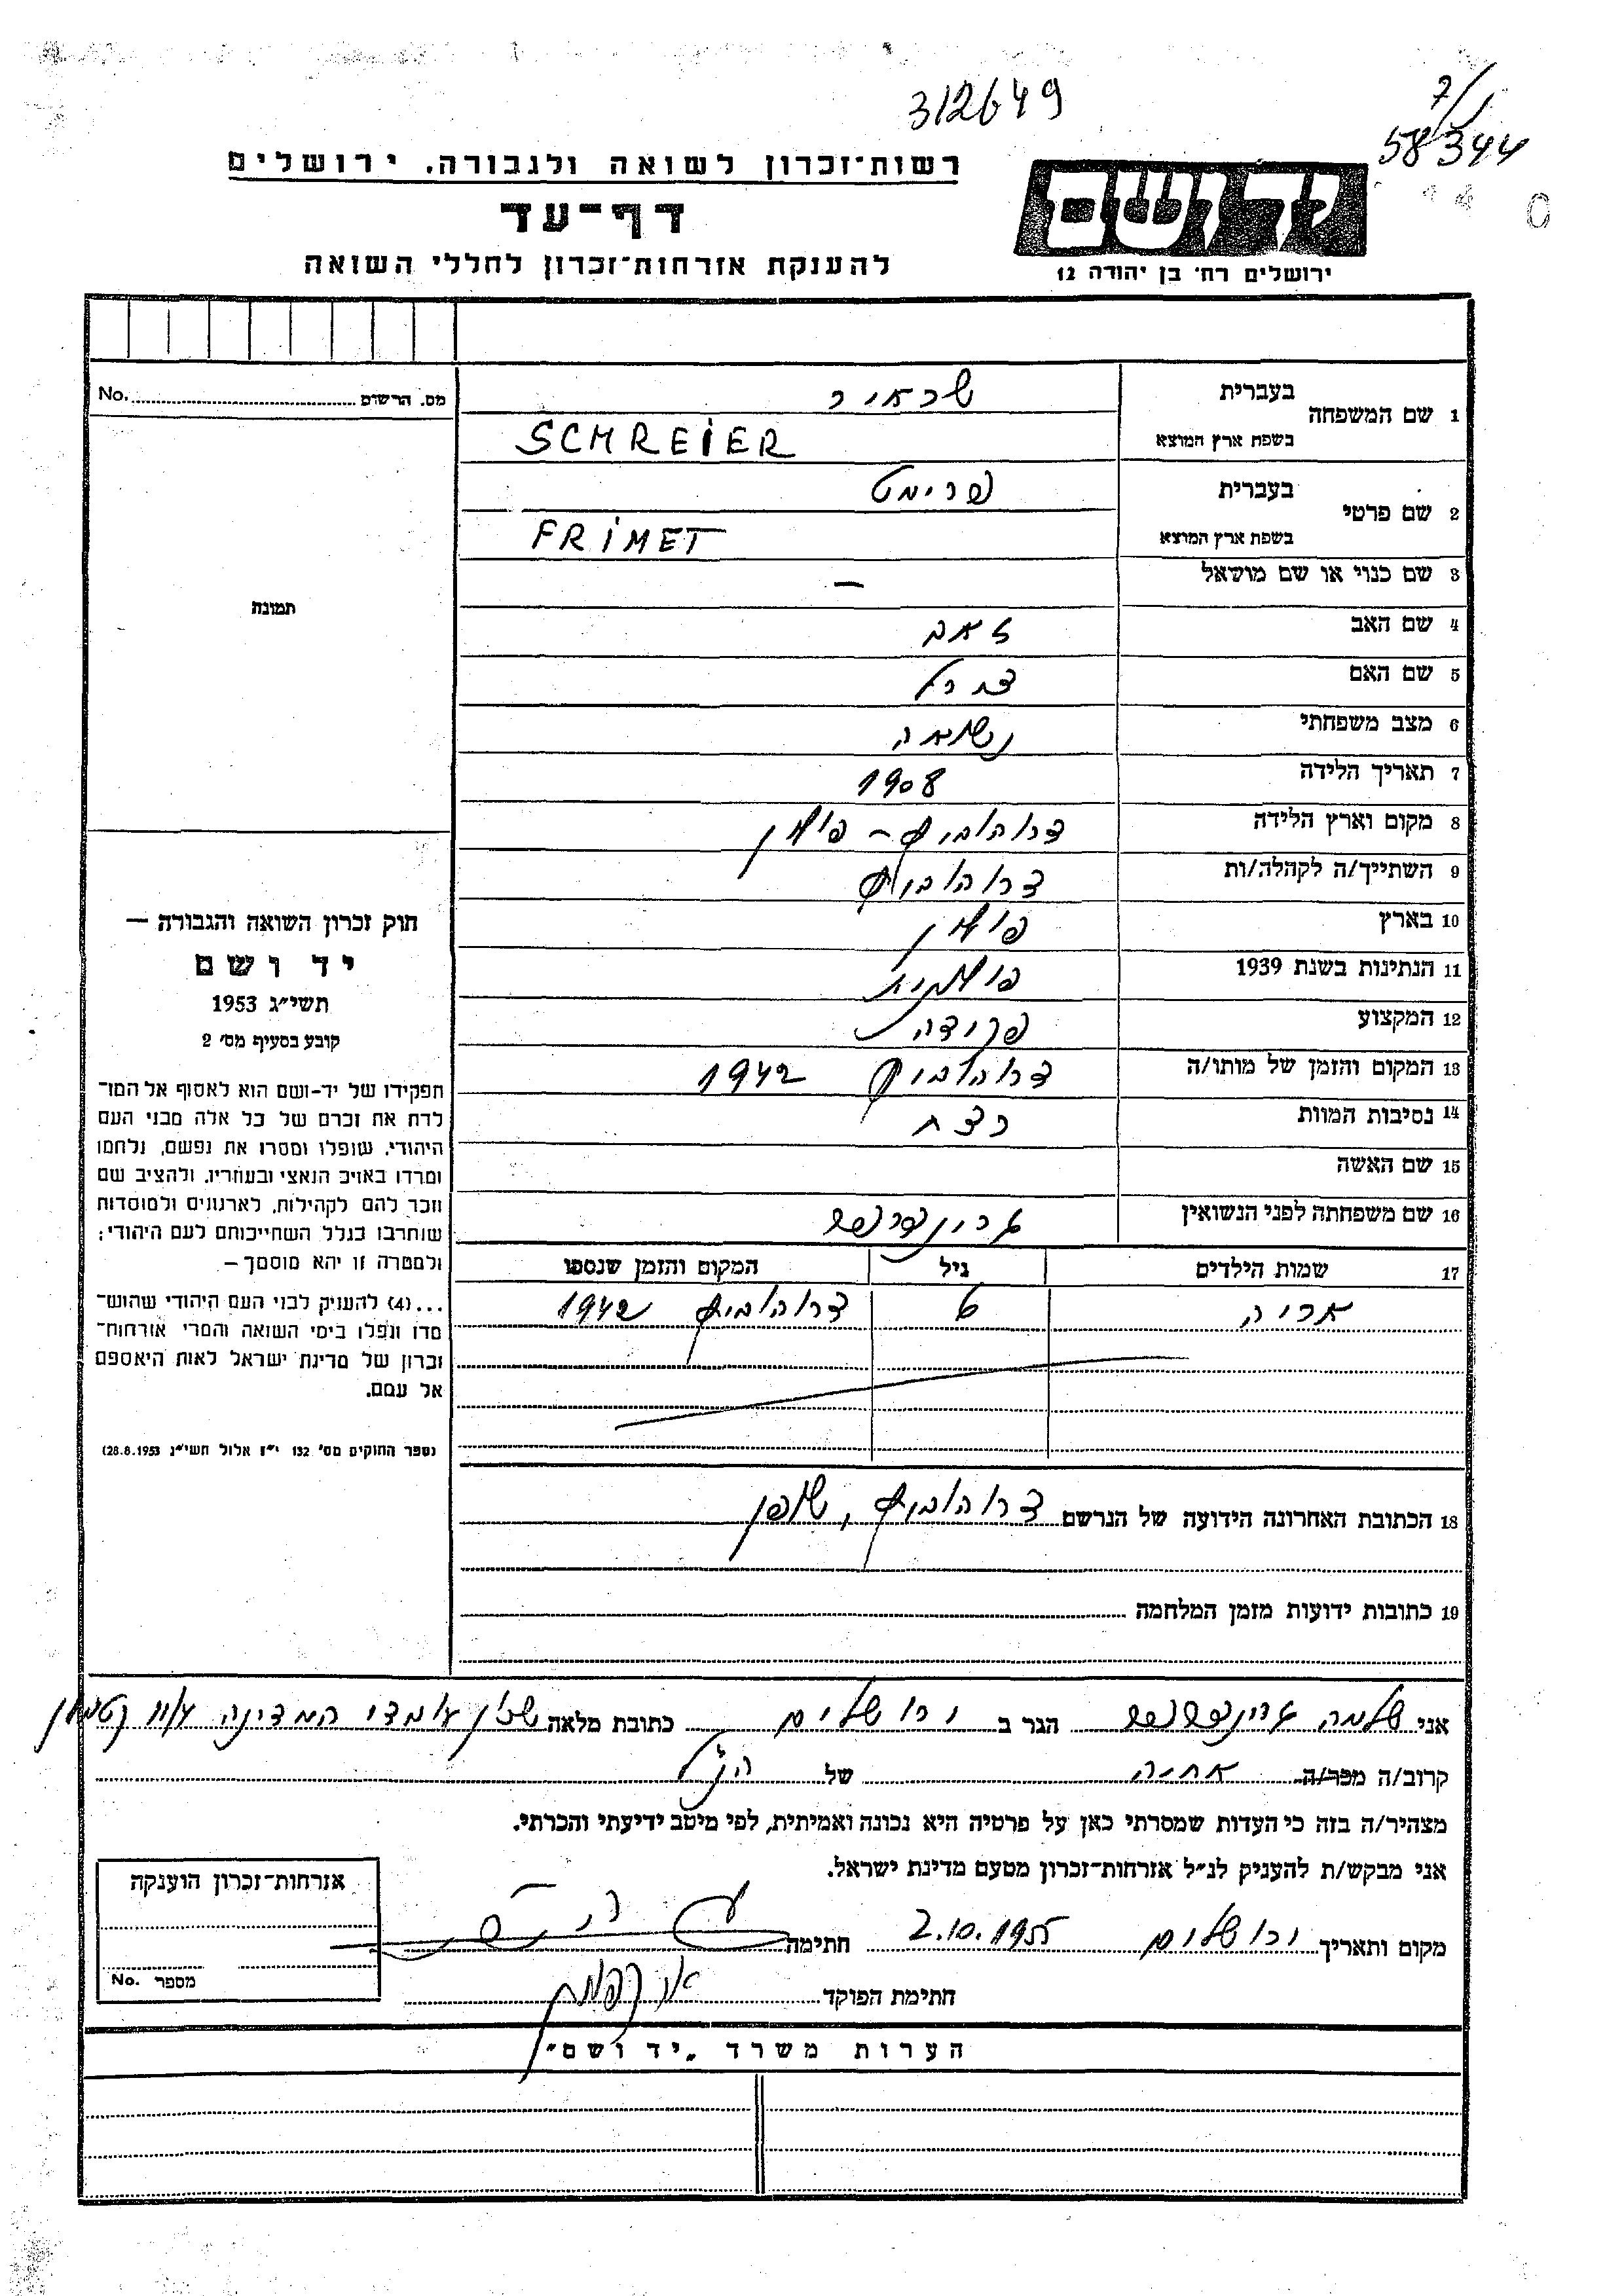 312649
7/1
58344
רשות־זכרון לשואה ולגבורה. ירושלים
דף־עד
להענקת אזרחות־זכרון לחללי השואה
יד ושם
ירושלים רח׳ בן יהודה 12
No. מס. הרשום
תמונה
1 שם המשפחה בעברית שראיר
בשפת ארץ המוצא SCHREIER
2 שם פרטי בעברית פרימט
בשפת ארץ המוצא FRIMET
3 שם כנוי או שם מושאל –
4 שם האב זאב
5 שם האם
6 מצב משפחתי נשואה
7 תאריך הלידה 1908
8 מקום וארץ הלידה דרוהוביץ – פולין
9 השתייך/ה לקהלה/ות דרוהוביץ
10 בארץ פולין
11 הנתינות בשנת 1939 פולנית
12 המקצוע פקידה
13 המקום והזמן של מותו/ה דרוהוביץ 1942
14 נסיבות המוות רצח
15 שם האשה
16 שם משפחתה לפני הנשואין
17 שמות הילדים גיל המקום והזמן שנספו
אריה 6 דרוהוביץ 1942
18 הכתובת האחרונה הידועה של הנרשם דרוהוביץ, שופן
19 כתובות ידועות מזמן המלחמה
חוק זכרון השואה והגבורה –
יד ושם
תשי״ג 1953
קובע בסעיף מס׳ 2
תפקידו של יד-ושם הוא לאסוף אל המו־
לדת את זכרם של כל אלה מבני העם
היהודי, שנפלו ומסרו את נפשם, נלחמו
ומרדו באויב הנאצי ובעוזריו, ולהציב שם
וזכר להם לקהילות, לארגונים ולמוסדות
שנחרבו בגלל השתייכותם לעם היהודי;
ולמטרה זו יהא מוסמך –
...(4) להעניק לבני העם היהודי שהוש־
מדו ונפלו בימי השואה והמרי אזרחות־
זכרון של מדינת ישראל לאות היאספם
אל עמם.
(ספר החוקים מס׳ 132 י״ז אלול תשי״ג 28.8.1953)
אני שלמה הגר ב ירושלים כתובת מלאה שכון עובדי המדינה קטמון
קרוב/ה מכר/ה אחיה של הנ״ל
מצהיר/ה בזה כי העדות שמסרתי כאן על פרטיה היא נכונה ואמיתית, לפי מיטב ידיעתי והכרתי.
אני מבקש/ת להעניק לנ״ל אזרחות־זכרון מטעם מדינת ישראל.
מקום ותאריך ירושלים 2.10.1955 חתימה
חתימת הפוקד
אזרחות־זכרון הוענקה
מספר No.
הערות משרד „יד ושם״